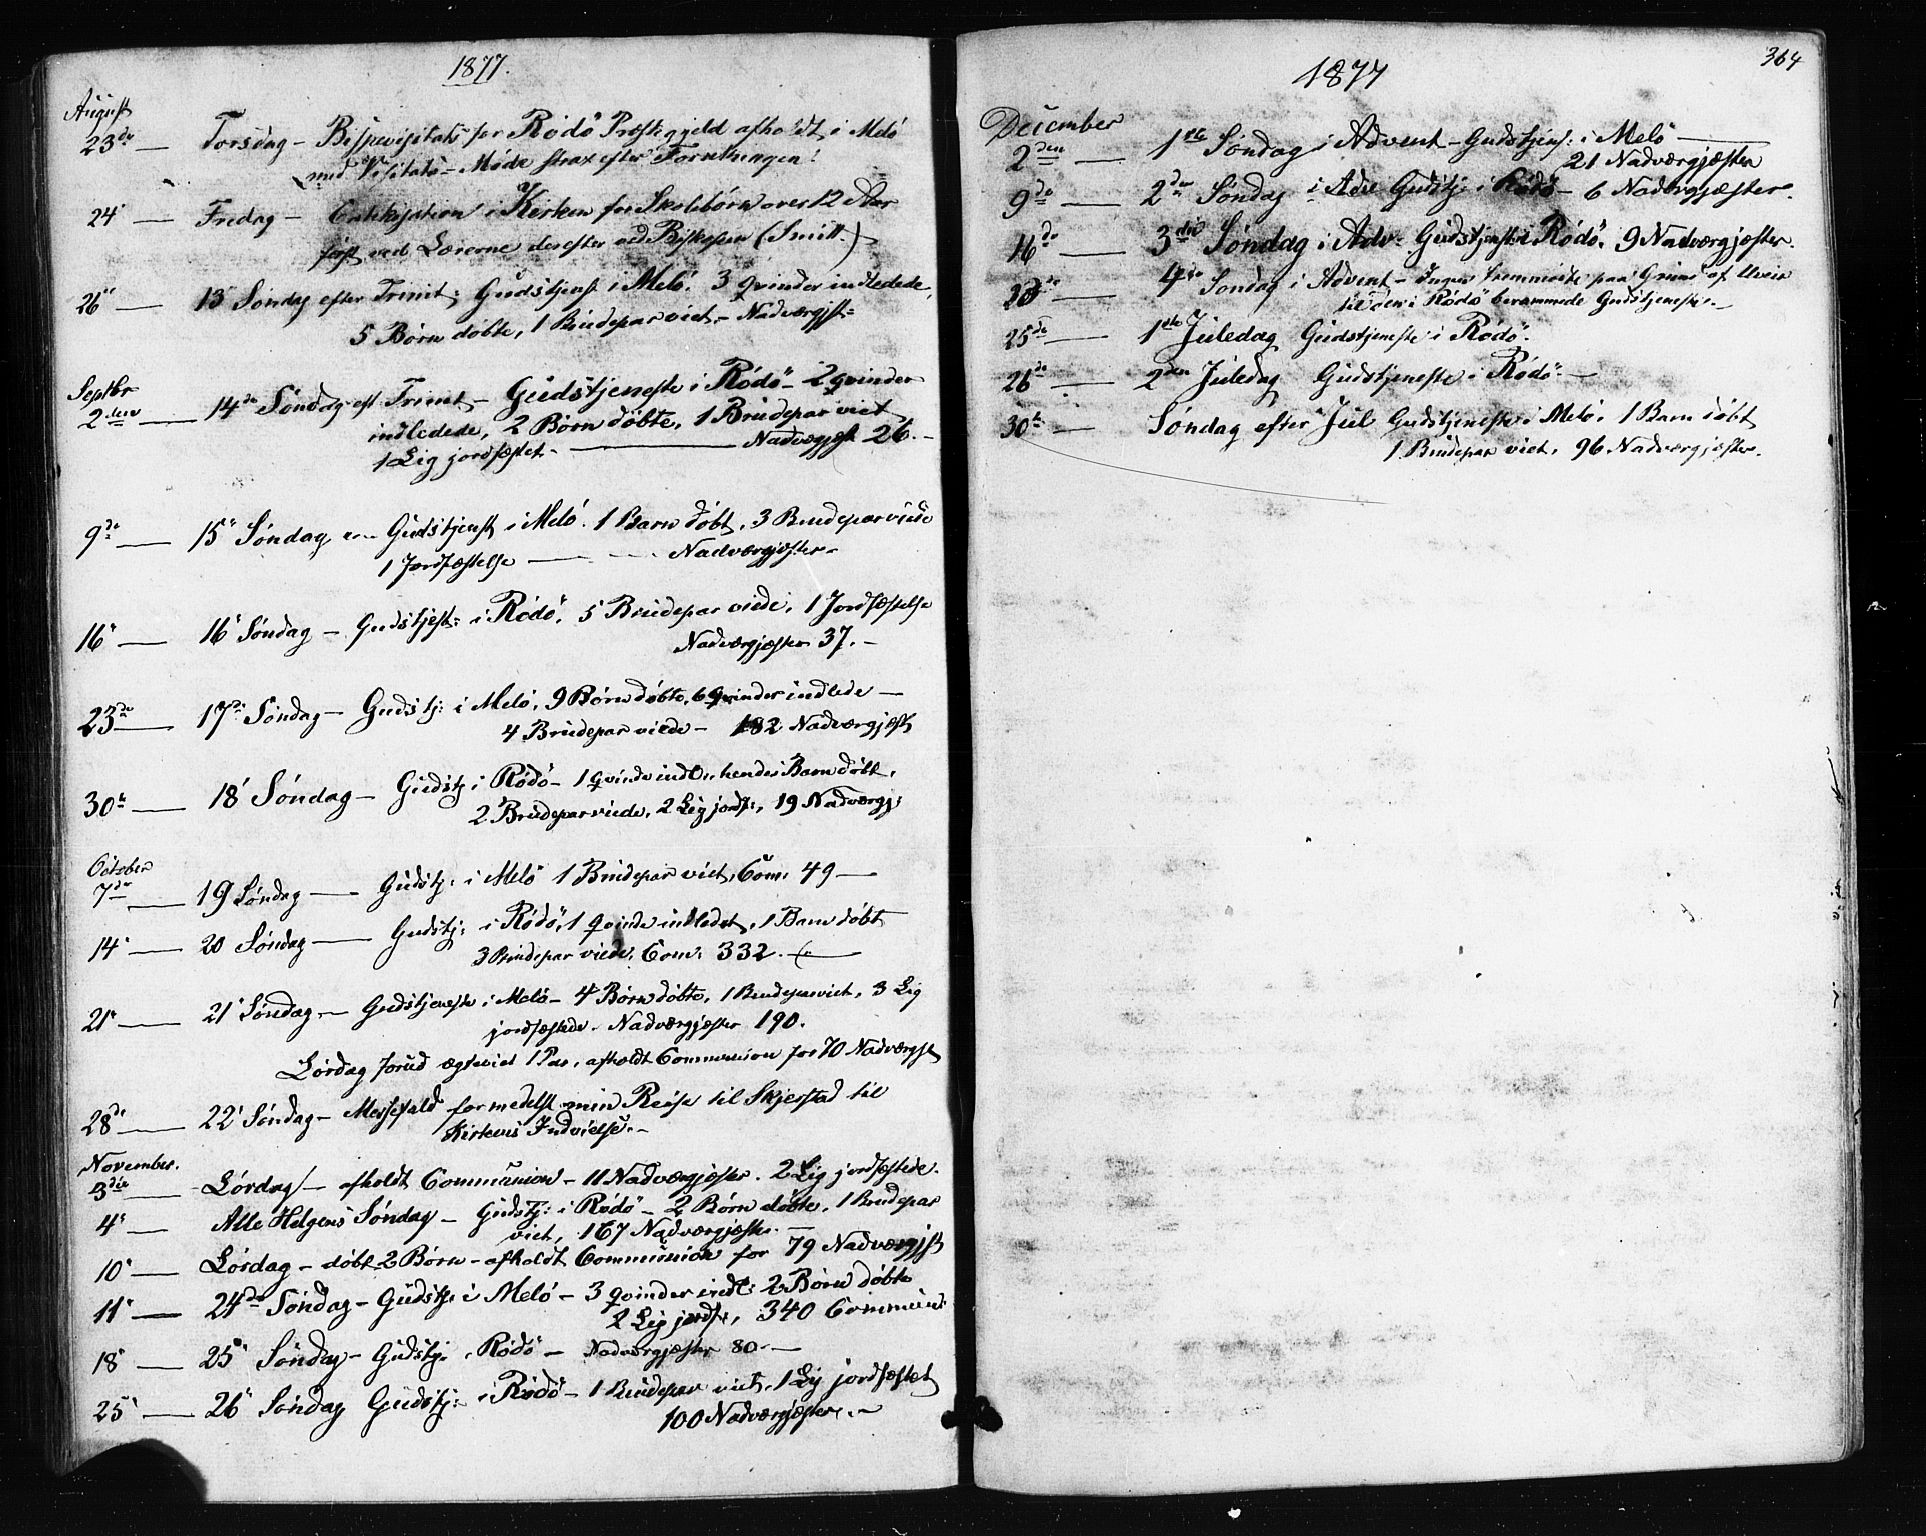 1877.
August
23de — Torsdag – Bispevisitats for Rödö Præstegjeld afholdt i Melö
med Visitats-Möde strax efter Forretningen.
24' — Fredag – Catekisation i Kirken for Skolebörn over 12 Aar
først ved Lærerne derefter ved Biskopen (Smitt.)
26" — 13' Søndag efter Trinit: Gudstjenst i Melö. 3 qvinder indledede,
5 Børn døbte, 1 Brudepar viet, – Nadvergjst=
Septbr
2den — 14de Søndag eft Trinit – Gudstjeneste i Rödö – 2 qvinder
indledede, 2 Børn døbte, 1 Brudepar viet
1 Lig jordfæstet. — Nadvergjest 26. –
9de — 15" Søndag Gudstjenst i Melö. 1 Barn døbt, 3 Brudepar viede
1 Jordfæstelse — Nadvergjester.
16" — 16" Søndag – Gudstjest: i Rödö. 5 Brudepar viede, 1 Jordfæstelse
Nadvergjester 37. –
23de — 17de Søndag – Gudstj: i Melö, 9 Børn døbte, 6 qvinder indlede –
4 Brudepar viede – 182 Nadværgjest
30te — 18' Søndag – Gudstj i Rödö – 1 qvinde indl., hendes Barn døbt,
2 Brudepar viede, 2 Lig jordf:, 19 Nadværgj:
October
7de — 19 Søndag — Gudstj: i Melö 1 Brudepar viet, Com: 49 —
14' — 20 Søndag — Gudstj: i Rödö, 1 qvinde indledet, 1 Barn døbt
3 Brudepar viede, Com: 332. —
21' — 21' Søndag – Gudstjeneste i Melö – 4 Børn døbte, 1 Brudepar viet, 3 Lig
jordfæstede. Nadværgjester 190.
Lørdag forud ægteviet 1 Par, afholdt Communion for 70 Nadvergjst
28de — 22' Søndag – Messefald formedelst min Reise til Skjerstad til
Kirkens Indvielse. –
November.
3die — Lørdag – afholdt Communion – 11 Nadværgjester. 2 Lig jordfæstede.
4' — Alle Helgens Søndag – Gudstj: i Rödö – 2 Børn døbte, 1 Brudepar
viet, 167 Nadværgjester.
10' — Lørdag – døbt 2 Børn – afholdt Communion for 79 Nadværgjst
11' — 24de Søndag – Gudstj: i Melö – 3 qvinder indl: 2 Børn døbte
2 Lig jordf:, 340 Commun:
18' — 25" Søndag – Gudstj. Rödö – Nadværgjester 80. —
25' — 26' Søndag Gudstj: i Rödö – 1 Brudepar viet, 1 Lig jordfæstet
100 Nadværgjester. –
364
1877
December
2den — 1ste Søndag i Advent – Gudstjenst: i Melö —
21 Nadværgjæster
9de — 2den Søndag i Adv Gudstj: i Rödö – 6 Nadvergjæster.
16de — 3die Søndag i Adv: Gudstjenst i Rödö. 9 Nadvergjæster.
23de — 4de Søndag i Advent – Ingen fremmødte paa Grund af Uveir
til den i Rödö berammede Gudstjeneste. –
25de — 1ste Juledag Gudstjeneste i Rödö.
26de — 2den Juledag Gudstjeneste i Rödö. —
30te — Søndag efter Jul Gudstjeneste i Melö. 1 Barn døbt
1 Brudepar viet, 96 Nadværgjæster.